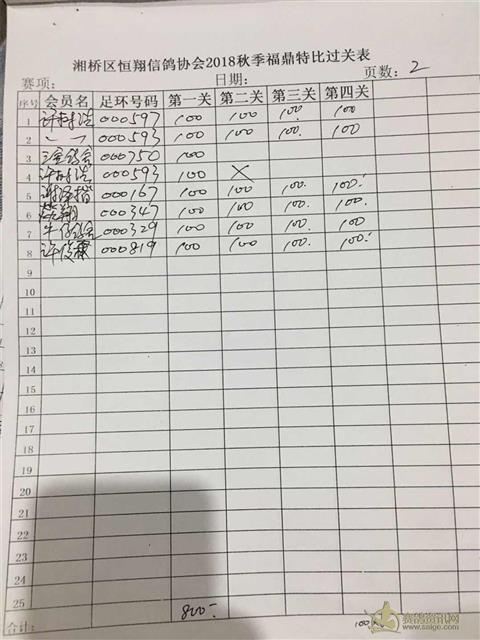 湘桥区恒翔信鸽协会2018秋季福鼎特比过关表
赛项: 日期: 页数: 2
序号 会员名 足环号码 第一关 第二关 第三关 第四关
1 000597 100 100 100. 100
2 000593 100 100 100. 100
3 000750 100
4 000593 100 ×
5 000167 100 100 100. 100.
6 000347 100 100 100. 100.
7 000329 100 100 100. 100.
8 000819 100 100 100. 100.
9
10
11
12
13
14
15
16
17
18
19
20
21
22
23
24
25
合计: 800.
赛鸽资讯网
www.saige.com